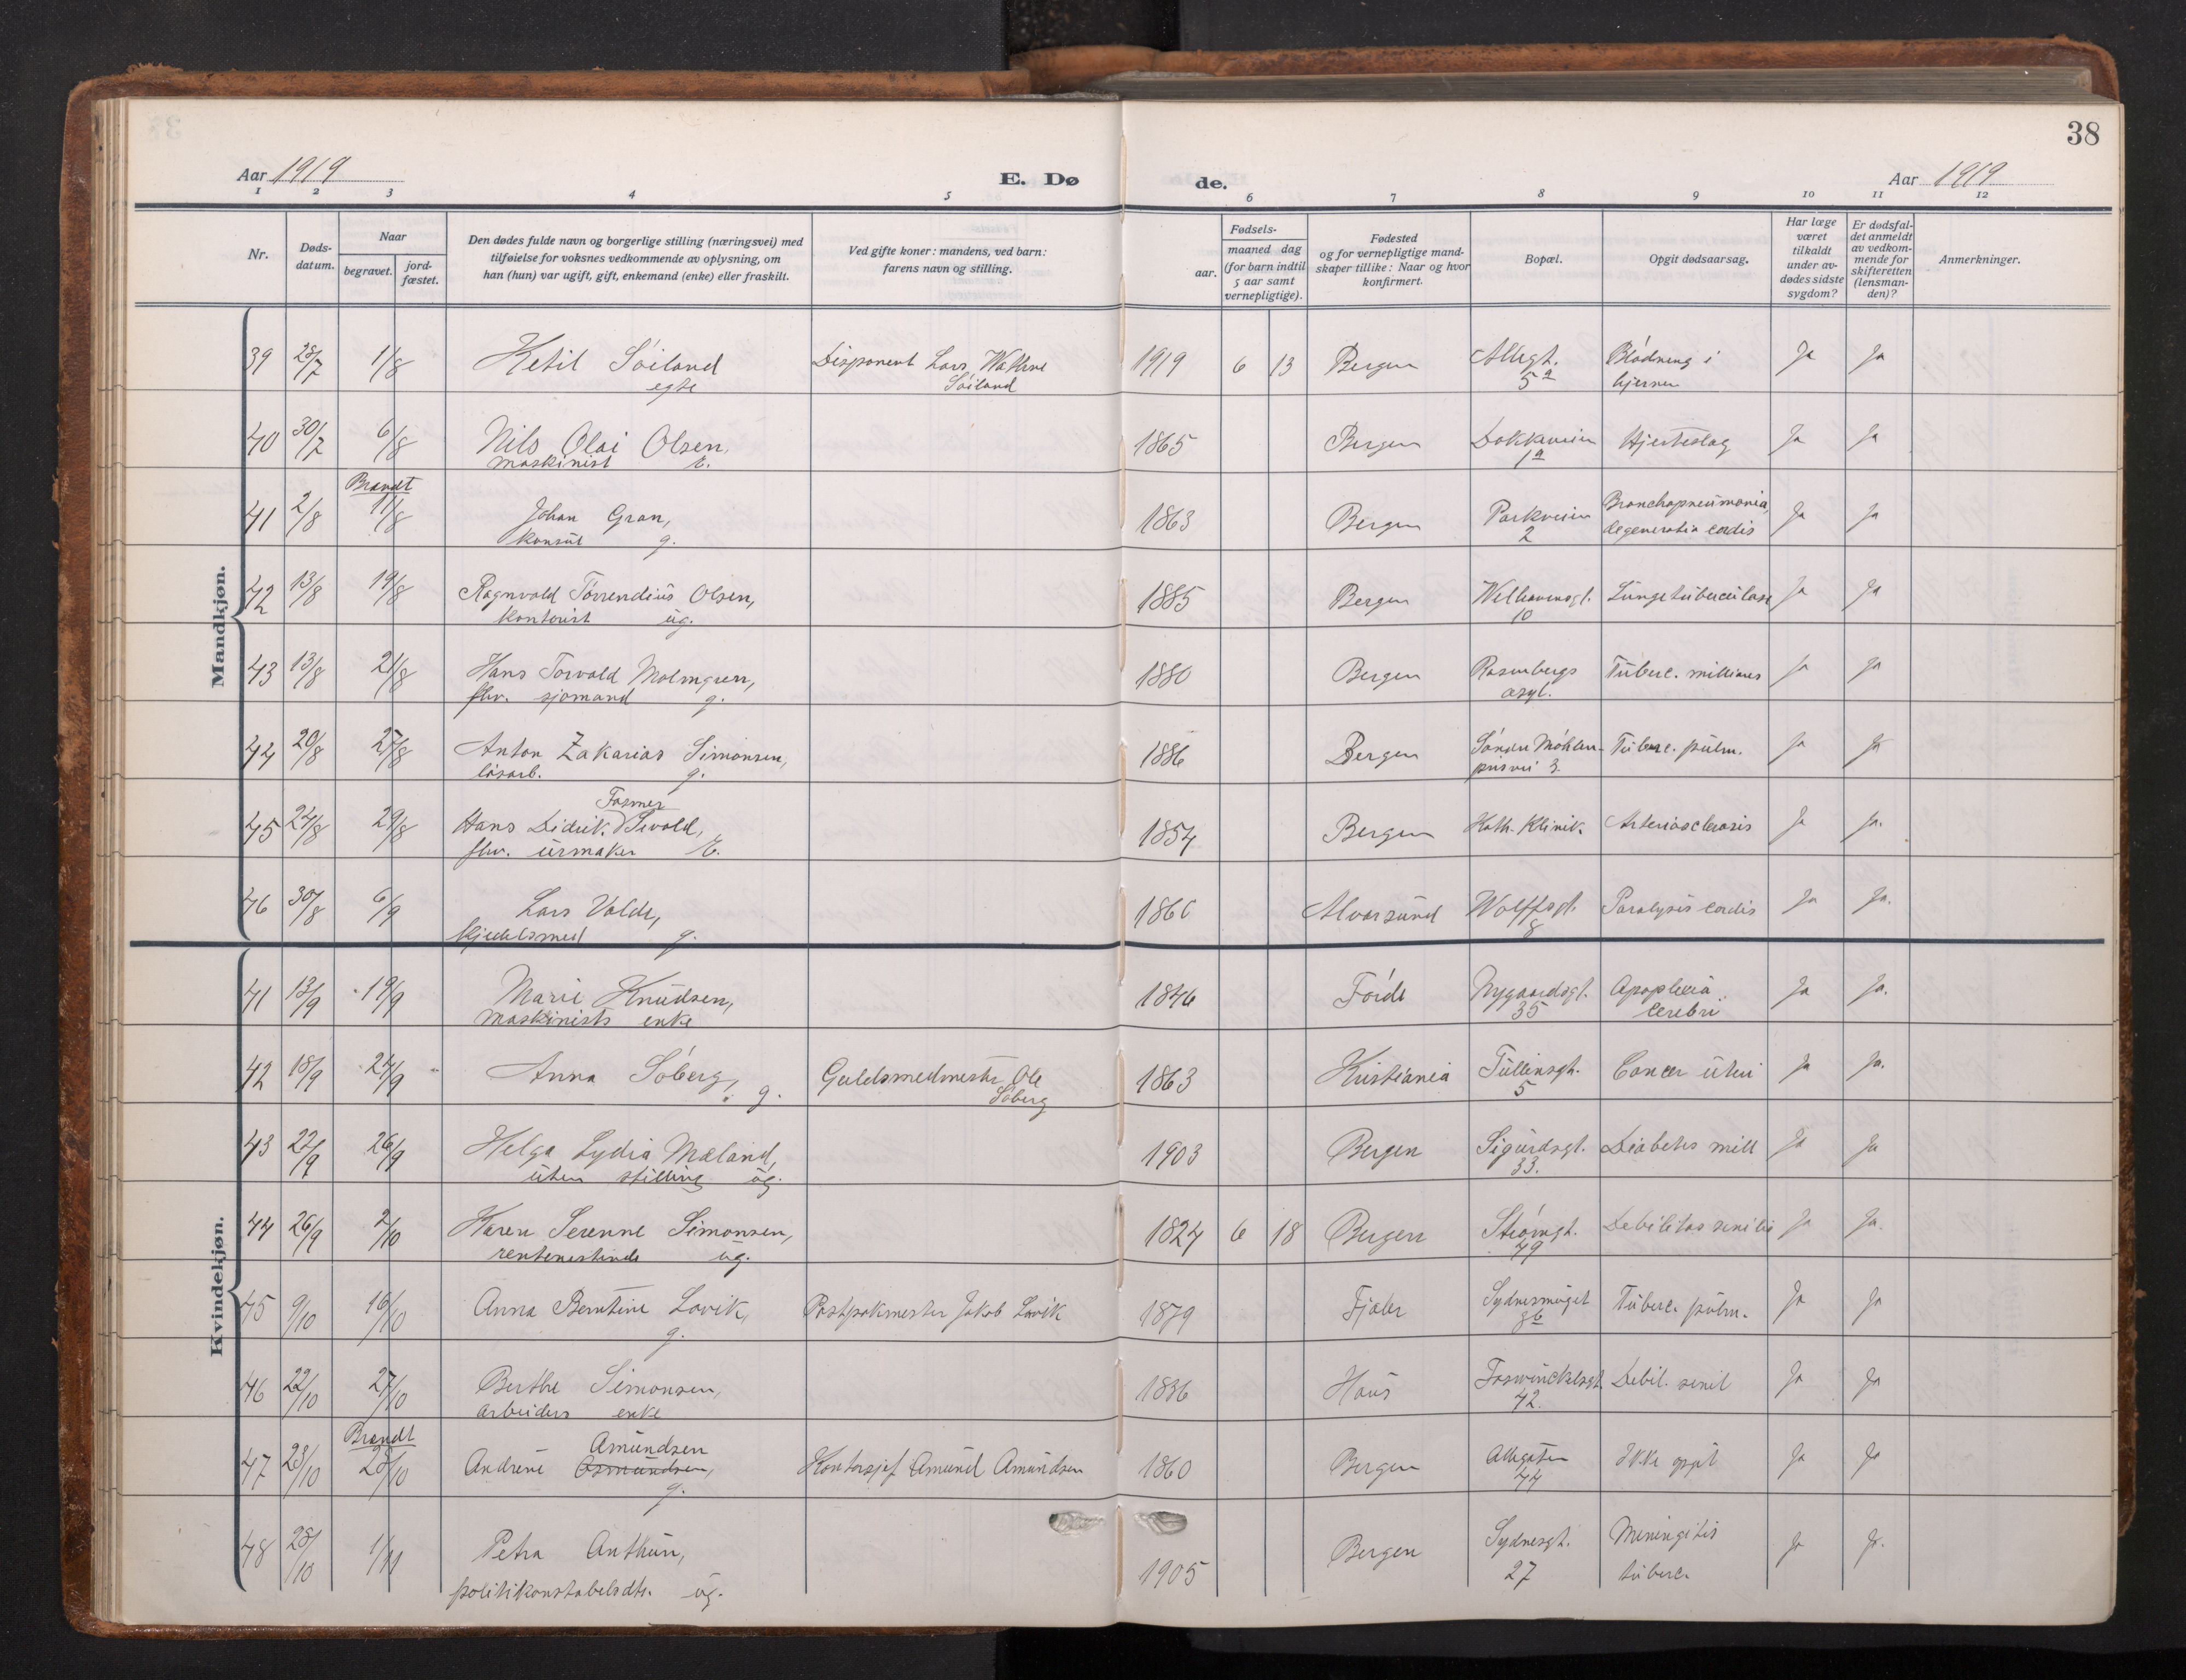 38
Aar 1919
E. Dø
de.
Aar 1919
1 2 3 4 5 6 7 8 9 10 11 12
Nr.
Døds-
datum.
Naar
begravet.
jord-
fæstet.
Den dødes fulde navn og borgerlige stilling (næringsvei) med
tilføielse for voksnes vedkommende av oplysning, om
han (hun) var ugift, gift, enkemand (enke) eller fraskilt.
Ved gifte koner: mandens, ved barn:
farens navn og stilling.
Fødsels-
aar.
maaned dag
(for barn indtil
5 aar samt
vernepligtige).
Fødested
og for vernepligtige mand-
skaper tillike: Naar og hvor
konfirmert.
Bopæl.
Opgit dødsaarsag.
Har læge
været
tilkaldt
under av-
dødes sidste
sygdom?
Er dødsfal-
det anmeldt
av vedkom-
mende for
skifteretten
(lensman-
den)?
Anmerkninger.
Mandkjøn.
39 28/7 1/8 Ketil Söiland Disponent Lars Wathne 1919 6 13 Bergen Allegt. Blödning i Ja Ja
egte Söiland 5a hjernen
40 30/7 6/8 Nils Olai Olsen, 1865 Bergen Dokkveien Hjerteslag Ja Ja
maskinist E. 1a
Brandt
41 2/8 11/8 Johan Gran, 1863 Bergen Parkveien Bronchopneumonia, Ja Ja
konsul g. 2 degeneratio cordis
42 13/8 19/8 Ragnvald Törrendius Olsen, 1885 Bergen Welhavensgt. Lungetuberculose Ja Ja
kontorist ug. 10
43 13/8 21/8 Hans Torvald Malmgren, 1880 Bergen Rosenbergs Tuberc. milliares Ja Ja
fhv. sjomand g. asyl.
44 20/8 27/8 Anton Zakarias Simonsen, 1886 Bergen Söndre Möhlen- Tuberc. pulm. Ja Ja
lösarb. g. prisvei 3.
Fasmer
45 24/8 29/8 Hans Didrik Sivold, 1854 Bergen Kath. Klinik. Arteriosclerosis Ja Ja.
fhv. urmaker E.
46 30/8 6/9 Lars Valde, 1860 Alversund Wolffsgt. Paralysis cordis Ja Ja.
kjedelsmed g. 8
Kvindekjøn.
41 13/9 19/9 Marie Knudsen, 1846 Förde Nygaardsgt. Apoplexia Ja Ja.
maskinists enke 35 cerebri
42 18/9 24/9 Anna Söberg, Guldsmedmester Ole 1863 Kristiania Tullinsgt. Cancer uteri Ja Ja.
g. Söberg 5
43 22/9 26/9 Helga Lydia Mæland, 1903 Bergen Sigurdsgt. Diabetes mell Ja Ja
uten stilling ug. 33.
44 26/9 2/10 Karen Serenne Simonsen, 1824 6 18 Bergen Strömgt. Debilitas senilis Ja Ja.
rentenistinde ug. 49
45 9/10 16/10 Anna Berntine Lavik, Postpakmester Jakob Lavik 1879 Fjaler Sydnessmuget Tuberc. pulm. Ja Ja
g. 8b
46 22/10 27/10 Berthe Simonsen, 1836 Haus Foswinckelsgt Debil. senil Ja Ja
arbeiders enke 42.
Brandt Amundsen
47 23/10 28/10 Andrene Osmundsen, Kontorsjef Amund Amundsen 1860 Bergen Allegaten Ikke opgit Ja Ja
g. 44
48 28/10 1/11 Petra Anthun, 1905 Bergen Sydnesgt. Meningitis Ja Ja.
politikonstabelsdtr. ug. 27 tuberc.